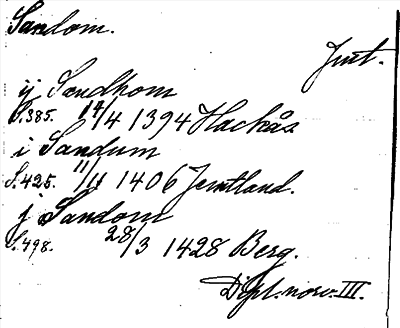 Sandom.
Jmt.
ij Sandhom
S.385. 14/4 1394 Hackås
i Sandum
S.425. 11/11 1406 Jemtland.
j Sandom
S.498. 28/3 1428 Berg.
Dipl. norv. III.